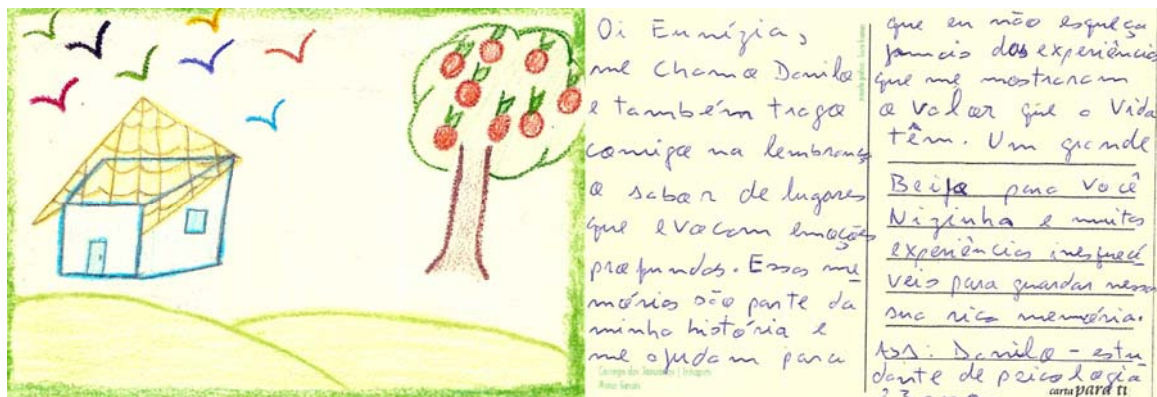 Oi Eunízia,
me chamo Danilo
e também trago
comigo na lembrança
o sabor de lugares
que evocam emoções
profundas. Essas me
mórias são parte da
minha história e
me ajudam para
Minas Gerais
que eu não esqueça
jamais das experiências
que me mostraram
o valor que a vida
têm. Um grande
Beijo para você
Nizinha e muitas
experiências inesquecí
veis para guardar nessa
sua rica memória.
Ass: Danilo - estu
dante de psicologia
carta para ti